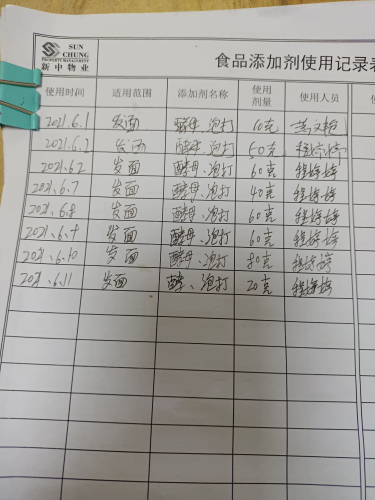 SUN
CHUNG
PROPERTY MANAGEMENT
新中物业
食品添加剂使用记录表
使用时间 适用范围 添加剂名称 使用剂量 使用人员
2021.6.1 发面 酵母、泡打
2021.6.2 发面 酵母、泡打 50克
2021.6.2 发面 酵母、泡打 60克
2021.6.7 发面 酵母、泡打 40克
2021.6.8 发面 酵母、泡打 60克
2021.6.9 发面 酵母、泡打 60克
2021.6.10 发面 酵母、泡打 80克
2021.6.11 发面 酵母、泡打 20克